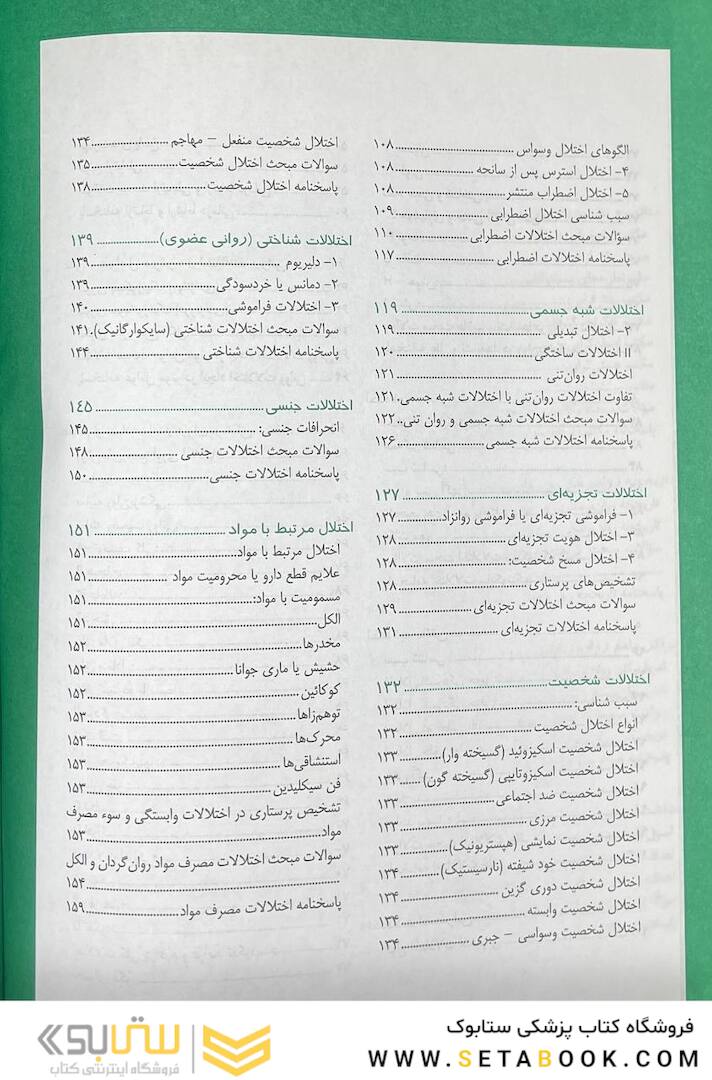 الگوهای اختلال وسواس ........ ۱۰۸
۴- اختلال استرس پس از سانحه ........ ۱۰۸
۵- اختلال اضطراب منتشر ........ ۱۰۸
سبب شناسی اختلال اضطرابی ........ ۱۰۹
سؤالات مبحث اختلالات اضطرابی ........ ۱۱۰
پاسخنامه اختلالات اضطرابی ........ ۱۱۷
اختلالات شبه جسمی ........ ۱۱۹
۲- اختلال تبدیلی ........ ۱۱۹
II اختلالات ساختگی ........ ۱۲۰
اختلالات روان‌تنی ........ ۱۲۱
تفاوت اختلالات روان‌تنی با اختلالات شبه جسمی. ۱۲۱
سوالات مبحث اختلالات شبه جسمی و روان تنی.. ۱۲۲
پاسخنامه اختلالات شبه جسمی ........ ۱۲۶
اختلالات تجزیه‌ای ........ ۱۲۷
۱- فراموشی تجزیه‌ای یا فراموشی روانزاد ........ ۱۲۷
۳- اختلال هویت تجزیه‌ای ........ ۱۲۸
۴- اختلال مسخ شخصیت: ........ ۱۲۸
تشخیص‌های پرستاری ........ ۱۲۸
سوالات مبحث اختلالات تجزیه‌ای ........ ۱۲۹
پاسخنامه اختلالات تجزیه‌ای ........ ۱۳۱
اختلالات شخصیت ........ ۱۳۲
سبب شناسی: ........ ۱۳۲
انواع اختلال شخصیت ........ ۱۳۲
اختلال شخصیت اسکیزوئید (گسیخته وار) ........ ۱۳۳
اختلال شخصیت اسکیزوتایپی (گسیخته گون) ........ ۱۳۳
اختلال شخصیت ضد اجتماعی ........ ۱۳۳
اختلال شخصیت مرزی ........ ۱۳۳
اختلال شخصیت نمایشی (هیستریونیک) ........ ۱۳۳
اختلال شخصیت خود شیفته (نارسیستیک) ........ ۱۳۴
اختلال شخصیت دوری گزین ........ ۱۳۴
اختلال شخصیت وابسته ........ ۱۳۴
اختلال شخصیت وسواسی – جبری ........ ۱۳۴
اختلال شخصیت منفعل – مهاجم ........ ۱۳۴
سوالات مبحث اختلال شخصیت ........ ۱۳۵
پاسخنامه اختلال شخصیت ........ ۱۳۸
اختلالات شناختی (روانی عضوی) ........ ۱۳۹
۱- دلیریوم ........ ۱۳۹
۲- دمانس یا خردسودگی ........ ۱۳۹
۳- اختلالات فراموشی ........ ۱۴۰
سوالات مبحث اختلالات شناختی (سایکوارگانیک). ۱۴۱
پاسخنامه اختلالات شناختی ........ ۱۴۴
اختلالات جنسی ........ ۱۴۵
انحرافات جنسی: ........ ۱۴۵
سوالات مبحث اختلالات جنسی ........ ۱۴۸
پاسخنامه اختلالات جنسی ........ ۱۵۰
اختلال مرتبط با مواد ........ ۱۵۱
اختلال مرتبط با مواد ........ ۱۵۱
علایم قطع دارو یا محرومیت مواد ........ ۱۵۱
مسمومیت با مواد: ........ ۱۵۱
الکل ........ ۱۵۱
مخدرها ........ ۱۵۲
حشیش یا ماری جوانا ........ ۱۵۲
کوکائین ........ ۱۵۲
توهم‌زاها ........ ۱۵۳
محرک‌ها ........ ۱۵۳
استنشاقی‌ها ........ ۱۵۳
فن سیکلیدین ........ ۱۵۳
تشخیص پرستاری در اختلالات وابستگی و سوء مصرف
مواد ........ ۱۵۳
سوالات مبحث اختلالات مصرف مواد روان‌گردان و الکل
........ ۱۵۴
پاسخنامه اختلالات مصرف مواد ........ ۱۵۹
فروشگاه کتاب پزشکی ستابوک
WWW.SETABOOK.COM
ستابوک
فروشگاه اینترنتی کتاب